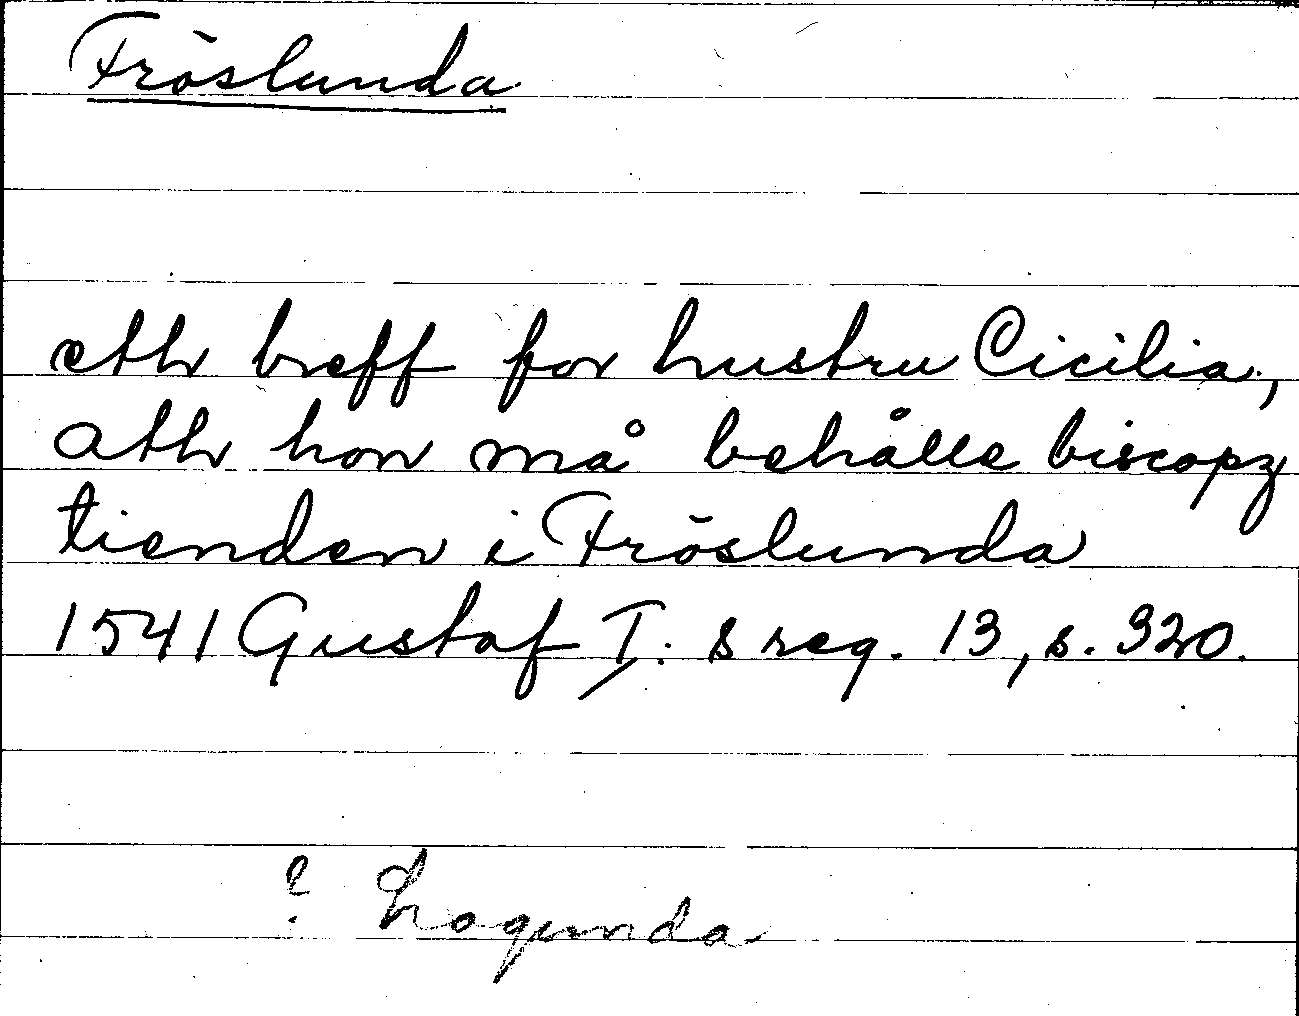 Fröslunda
eth breff for hustru Cicilia,
ath hon må behålle biscopz
tienden i Fröslunda
1541 Gustaf I: s reg. 13, s. 320.
? Lagunda